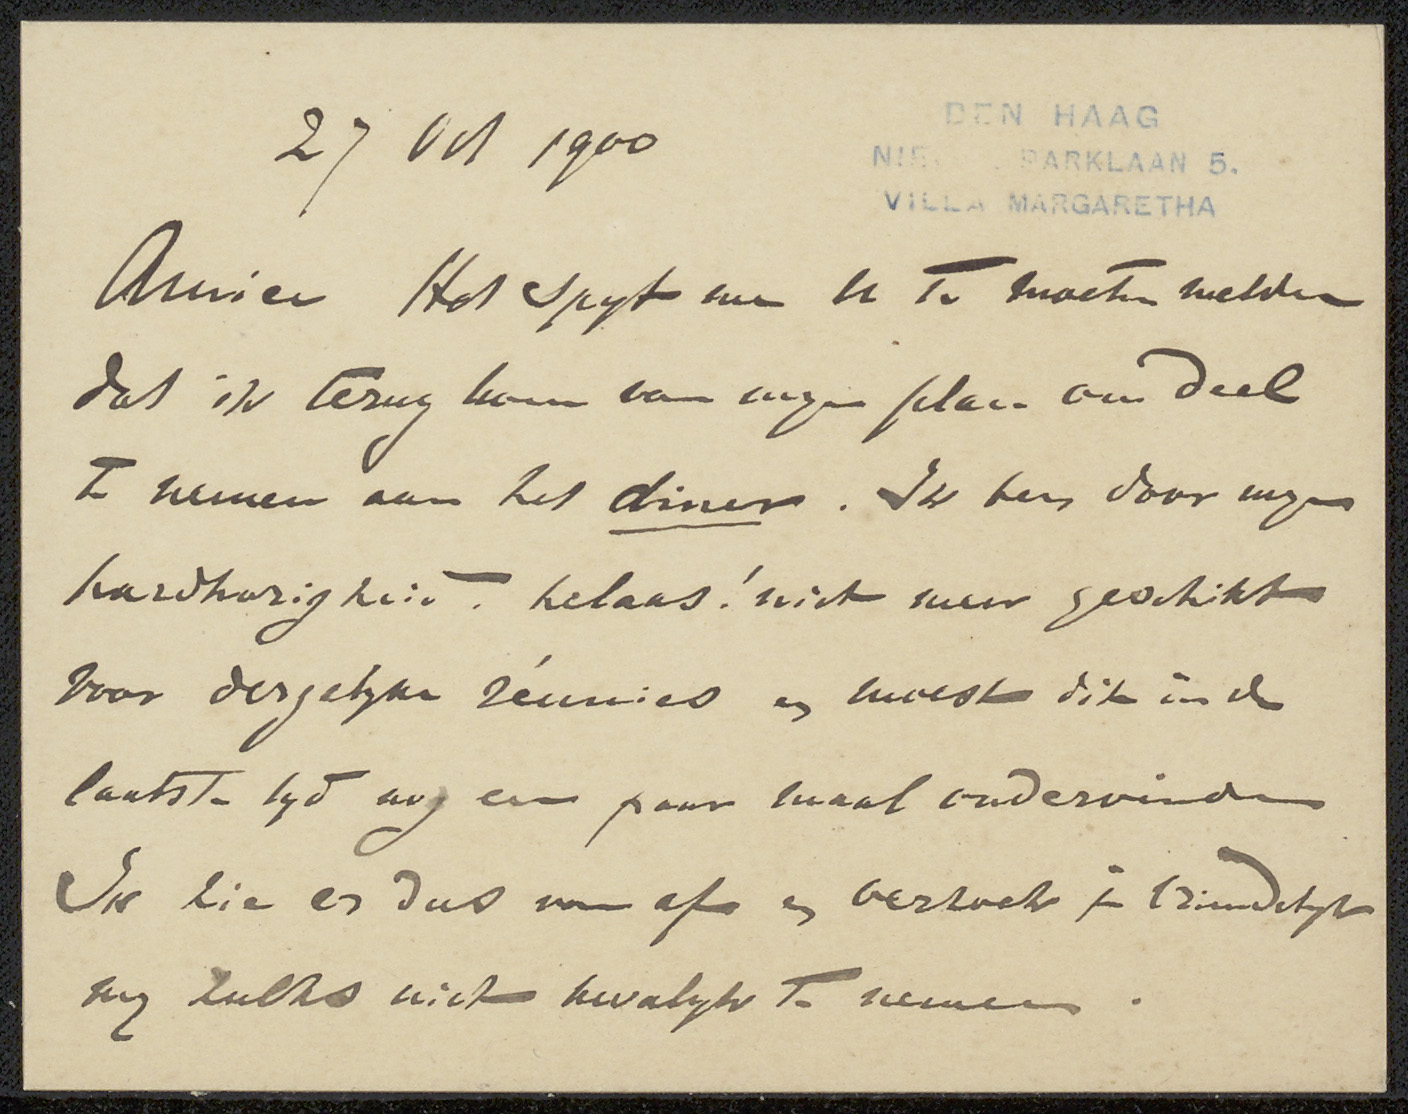 27 Oct 1900
DEN HAAG
PARKLAAN 5.
VILLA MARGARETHA
Amice Het spyt me U te moeten melden
dat ik terug kom van myn plan om deel
te nemen aan het diner. Ik ben door myn
hardhorigheid. helaas! niet meer geschikt
voor dergelyke réunies en moest dit in de
laatste tyd nog een paar maal ondervinden
Ik zie er dus van af en verzoek je vriendelyk
my zulks niet kwalyk te nemen.